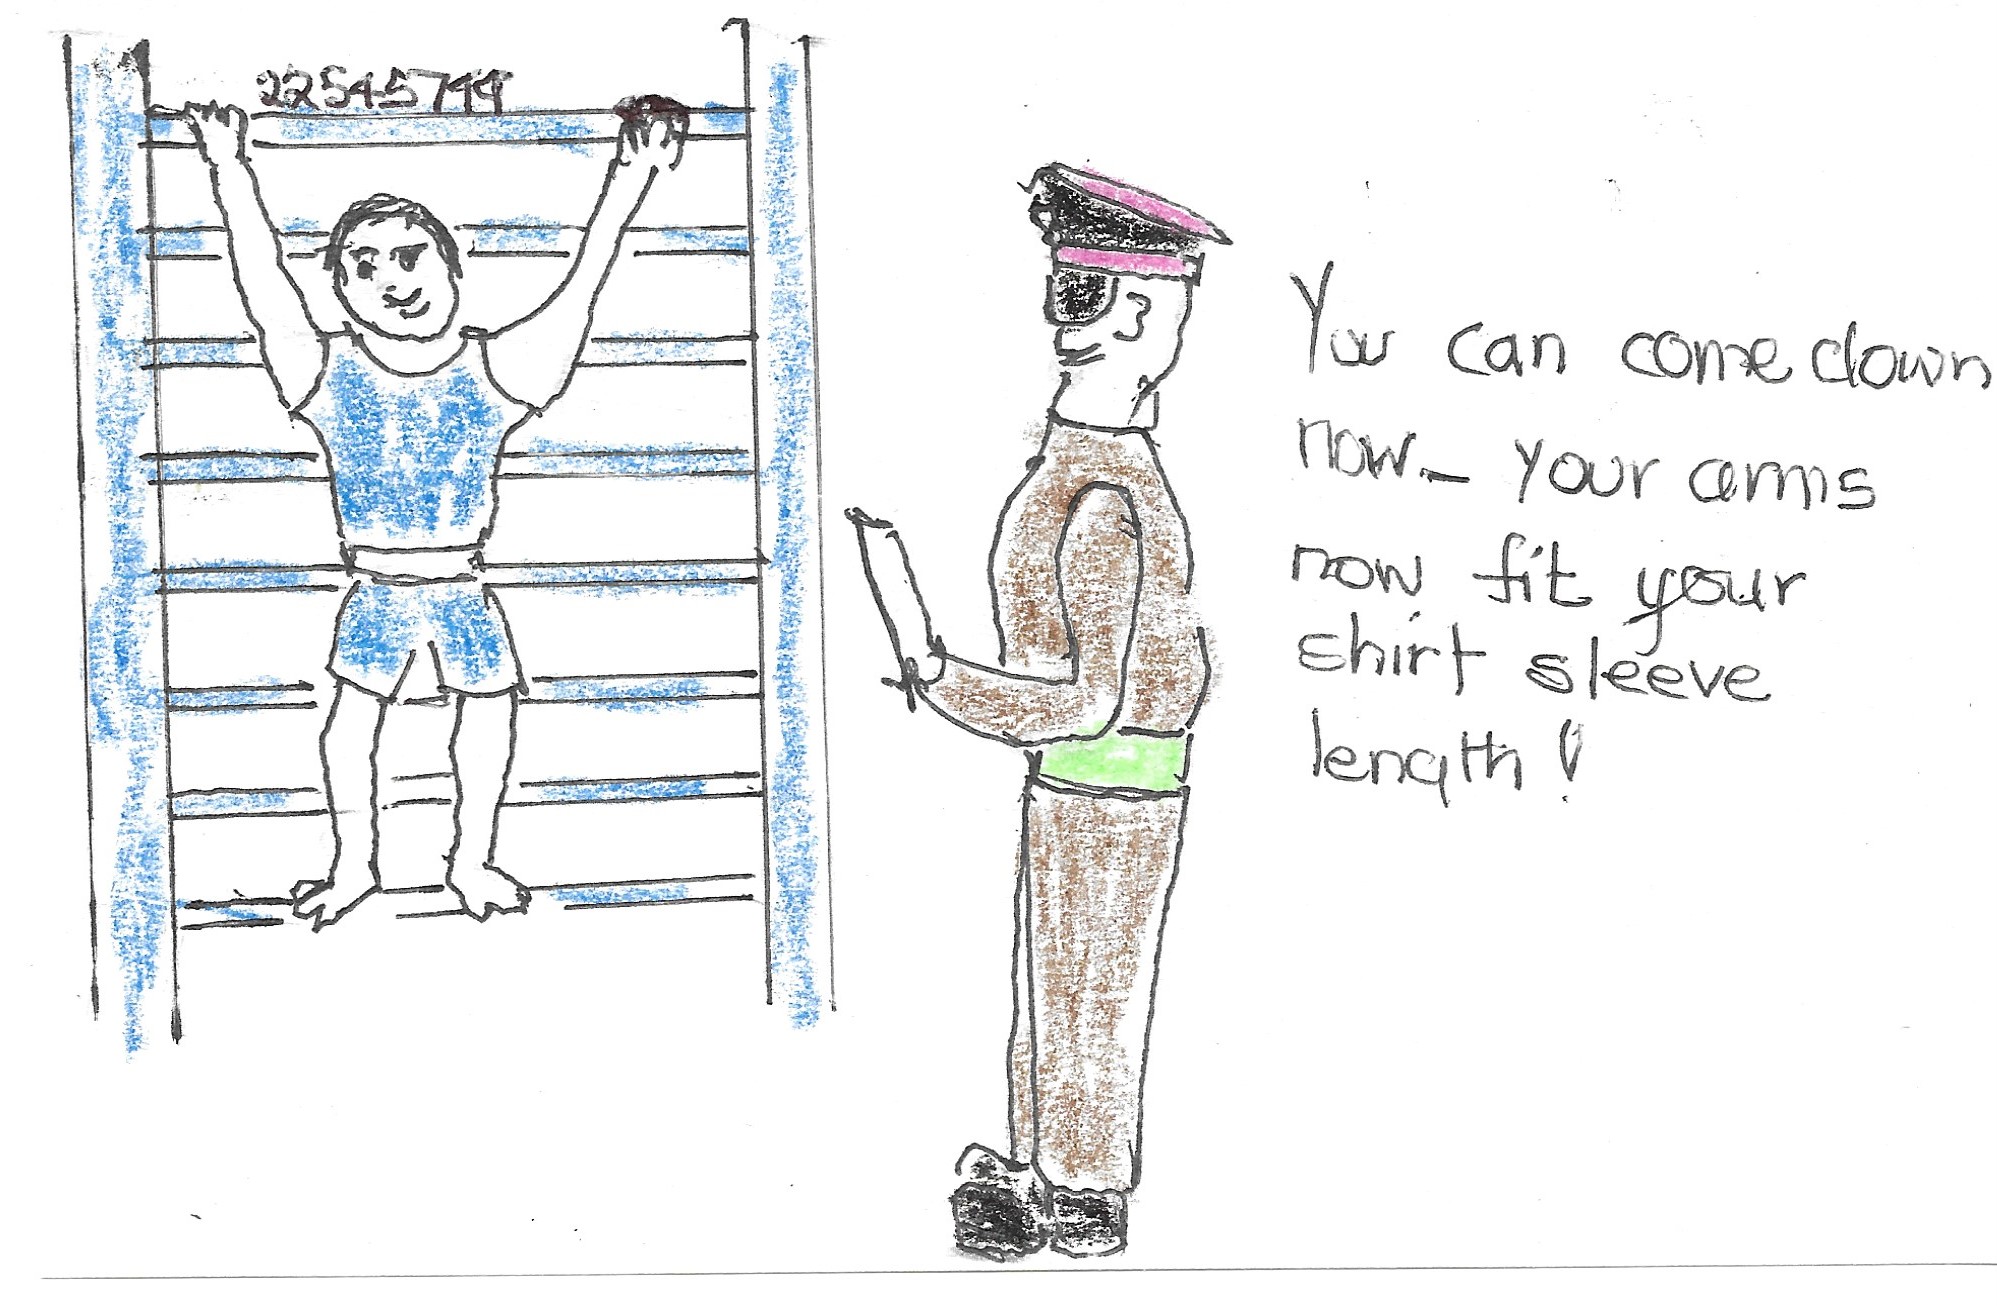 22545744
You can come down
now- your arms
now fit your
shirt sleeve
length!